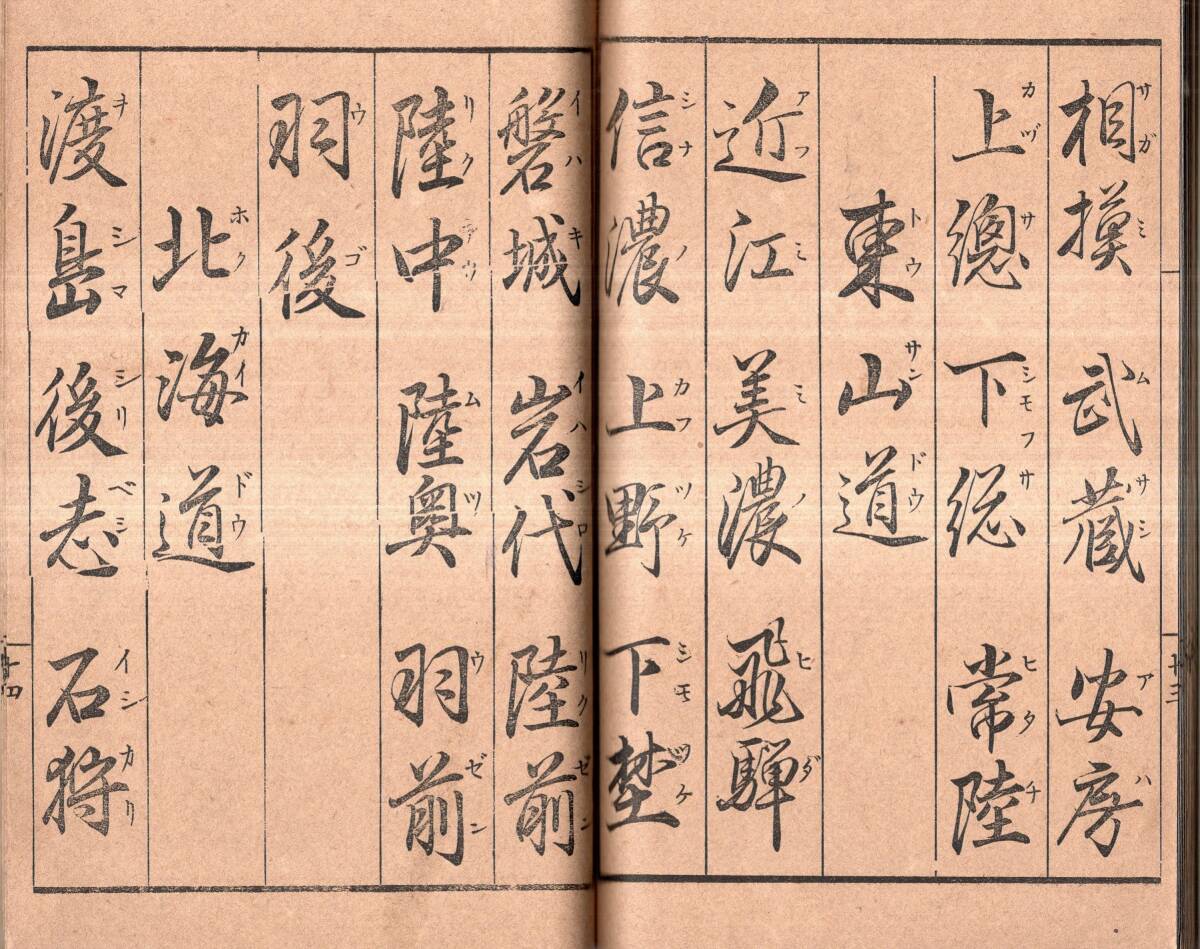 相摸 武蔵 安房
サガミ ムサシ アハ
上總 下総 常陸
カヅサ シモフサ ヒタチ
東山道
トウサンドウ
近江 美濃 飛騨
アフミ ミノ ヒダ
信濃 上野 下埜
シナノ カフツケ シモツケ
磐城 岩代 陸前
イハキ イハシロ リクゼン
陸中 陸奥 羽前
リクチウ ムツ ウゼン
羽後
ウゴ
北海道
ホクカイドウ
渡島 後志 石狩
ヲシマ シリベシ イシカリ
十三
十四